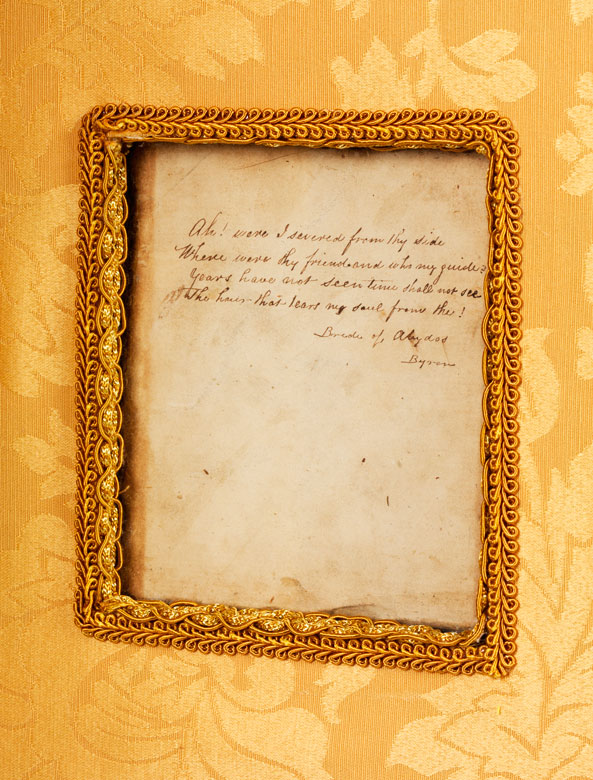 Ah! were I severed from thy side
Where were thy friend and who my guide?
Years have not seen time shall not see
The hour that tears my soul from the!
Brede of Abydos
Byron